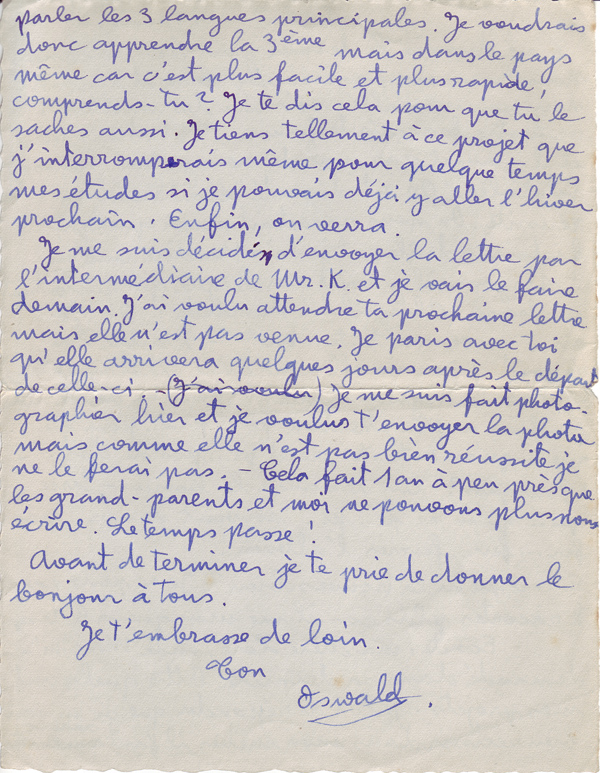 parler les 3 langues principales. Je voudrais
donc apprendre la 3ème mais dans le pays
même car c'est plus facile et plus rapide,
comprends-tu? Je te dis cela pour que tu le
saches aussi. Je tiens tellement à ce projet que
j'interromperais même pour quelque temps
mes études si je pouvais déjà y aller l'hiver
prochain. Enfin, on verra.
Je me suis décidé d'envoyer la lettre par
l'intermédiaire de Mr. K. et je vais le faire
demain. J'ai voulu attendre ta prochaine lettre
mais elle n'est pas venue. Je paris avec toi
qu'elle arrivera quelques jours après le départ
de celle-ci. - (J'ai voulu) Je me suis fait photo-
graphier hier et je voulus t'envoyer la photo
mais comme elle n'est pas bien réussite je
ne le ferai pas. - Cela fait 1 an à peu près que
les grand-parents et moi ne pouvons plus nous
écrire. Le temps passe!
Avant de terminer je te prie de donner le
bonjour à tous.
Je t'embrasse de loin.
Ton
Oswald.